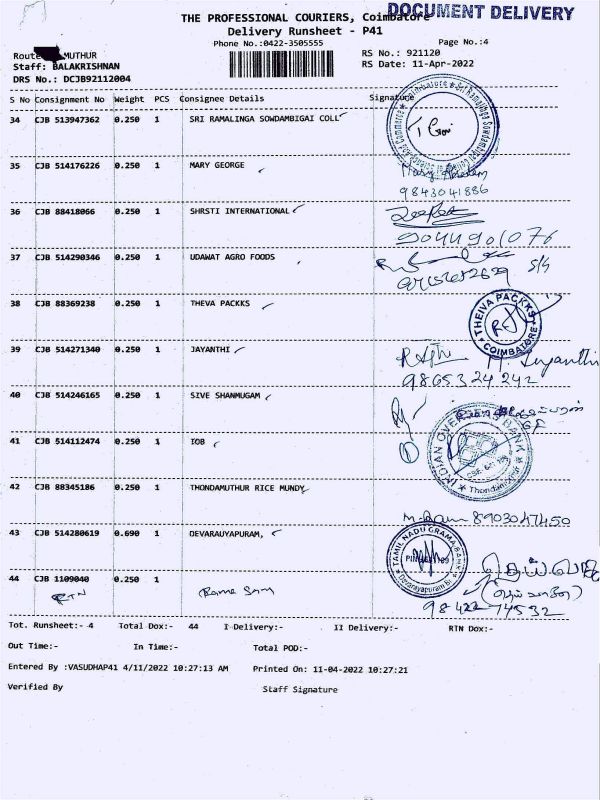 DOCUMENT DELIVERY
THE PROFESSIONAL COURIERS, Coimbatore
Delivery Runsheet - P41
Phone No.:0422-3505555
Page No.:4
Route MUTHUR
RS No.: 921120
Staff: BALAKRISHNAN
RS Date: 11-Apr-2022
DRS No.: DCJB92112004
S No Consignment No Weight PCS Consignee Details Signature
34 CJB 513947362 0.250 1 SRI RAMALINGA SOWDAMBIGAI COLL
35 CJB 514176226 0.250 1 MARY GEORGE
9843041886
36 CJB 88418066 0.250 1 SHRSTI INTERNATIONAL
9044901076
37 CJB 514290346 0.250 1 UDAWAT AGRO FOODS
38 CJB 88369238 0.250 1 THEVA PACKKS
THEIVA PACKKS
COIMBATORE
39 CJB 514271340 0.250 1 JAYANTHI
9865324242
40 CJB 514246165 0.250 1 SIVE SHANMUGAM
41 CJB 514112474 0.250 1 IOB
INDIAN OVERSEAS BANK
Thondamuthur
42 CJB 88345186 0.250 1 THONDAMUTHUR RICE MUNDY
8903047450
43 CJB 514280619 0.690 1 DEVARAUYAPURAM,
TAMIL NADU GRAMA BANK
Devarayapuram Br
44 CJB 1109040 0.250 1
RTN
98422 74532
Tot. Runsheet:- 4 Total Dox:- 44 I-Delivery:- II Delivery:- RTN Dox:-
Out Time:- In Time:- Total POD:-
Entered By :VASUDHAP41 4/11/2022 10:27:13 AM Printed On: 11-04-2022 10:27:21
Verified By Staff Signature